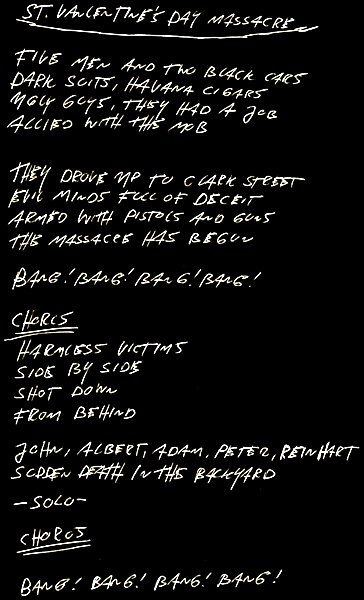 ST. VANLENTINE'S DAY MASSACRE
FIVE MEN AND TWO BLACK CARS
DARK SUITS, HAVANA CIGARS
UGLY GUYS, THEY HAD A JOB
ALLIED WITH THE MOB
THEY DROVE UP TO CLARK STREET
EVIL MINDS FULL OF DECEIT
ARMED WITH PISTOLS AND GUNS
THE MASSACRE HAS BEGUN
BANG! BANG! BANG! BANG!
CHORUS
HARMLESS VICTIMS
SIDE BY SIDE
SHOT DOWN
FROM BEHIND
JOHN, ALBERT, ADAM, PETER, REINHART
SUDDEN DEATH IN THE BACKYARD
-SOLO-
CHORUS
BANG! BANG! BANG! BANG!